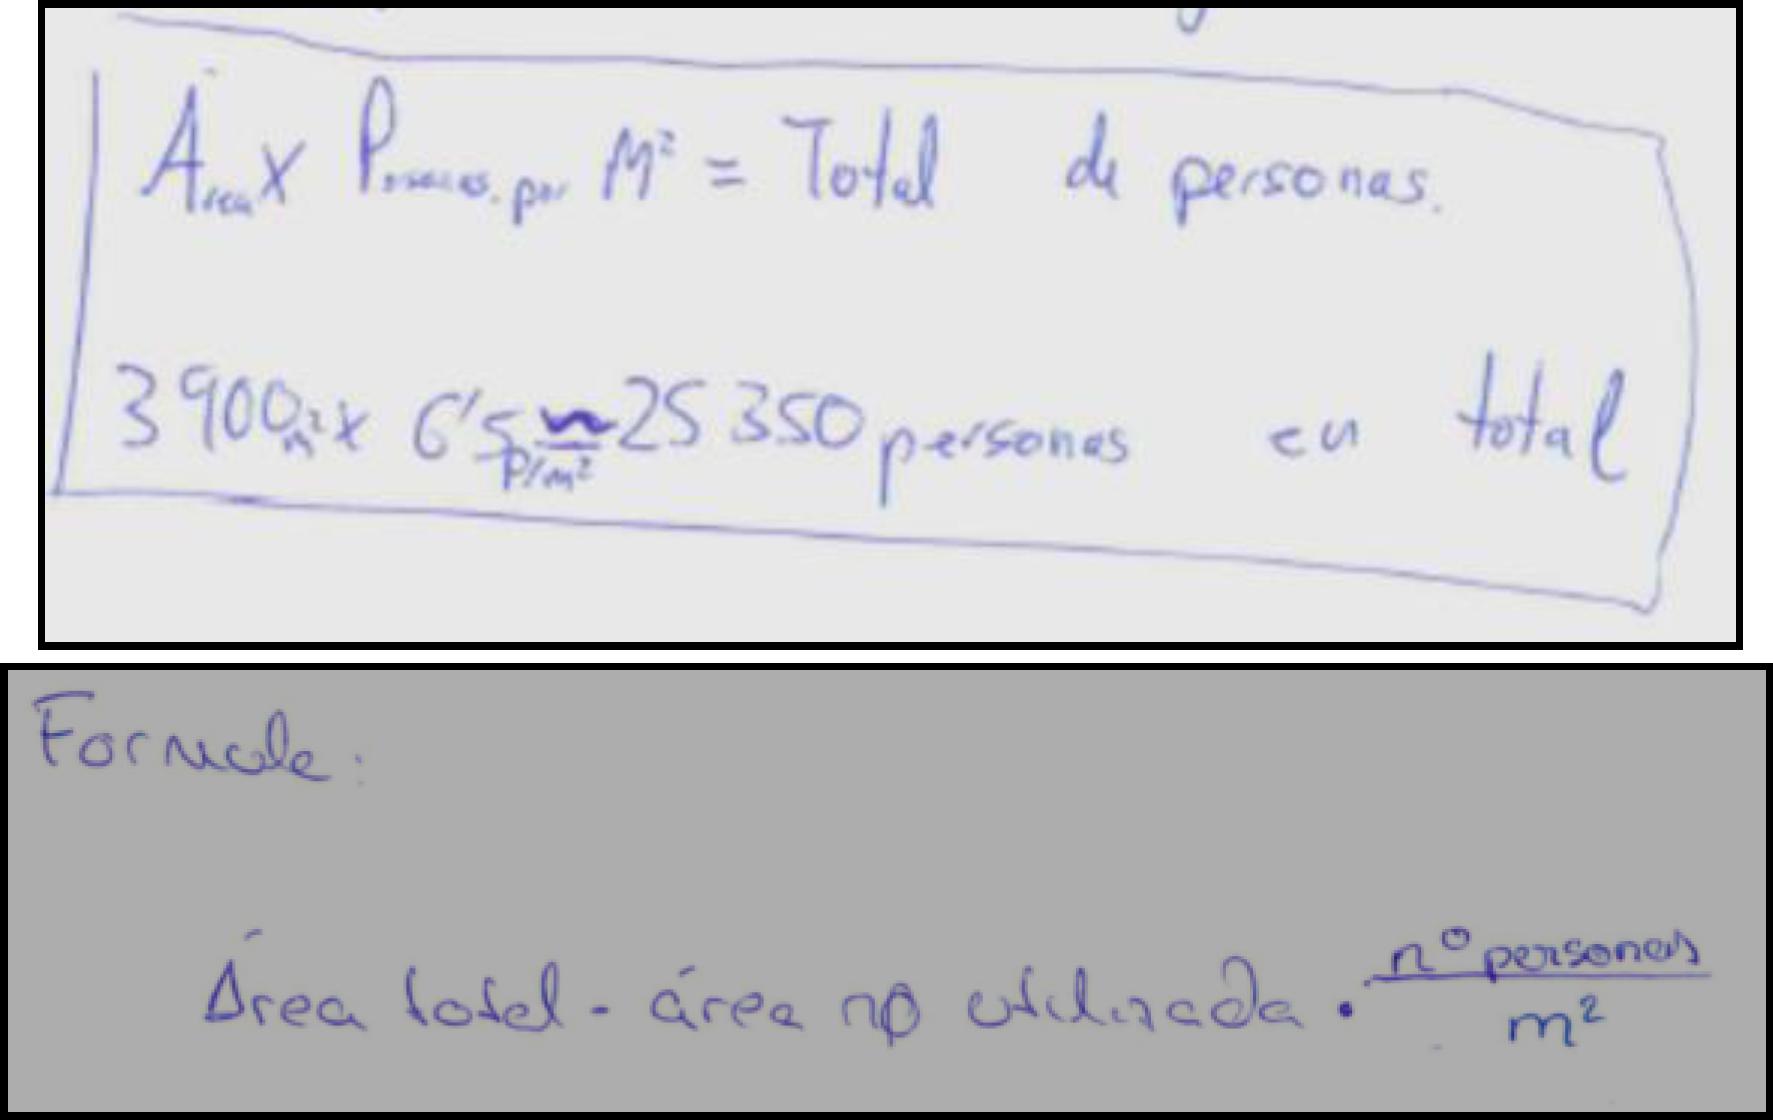 Área x Personas por M² = Total de personas.
3900m² x 6'5 p/m² ≈ 25350 personas en total
Formula:
Área total - área no utilizada · nº personas / m²